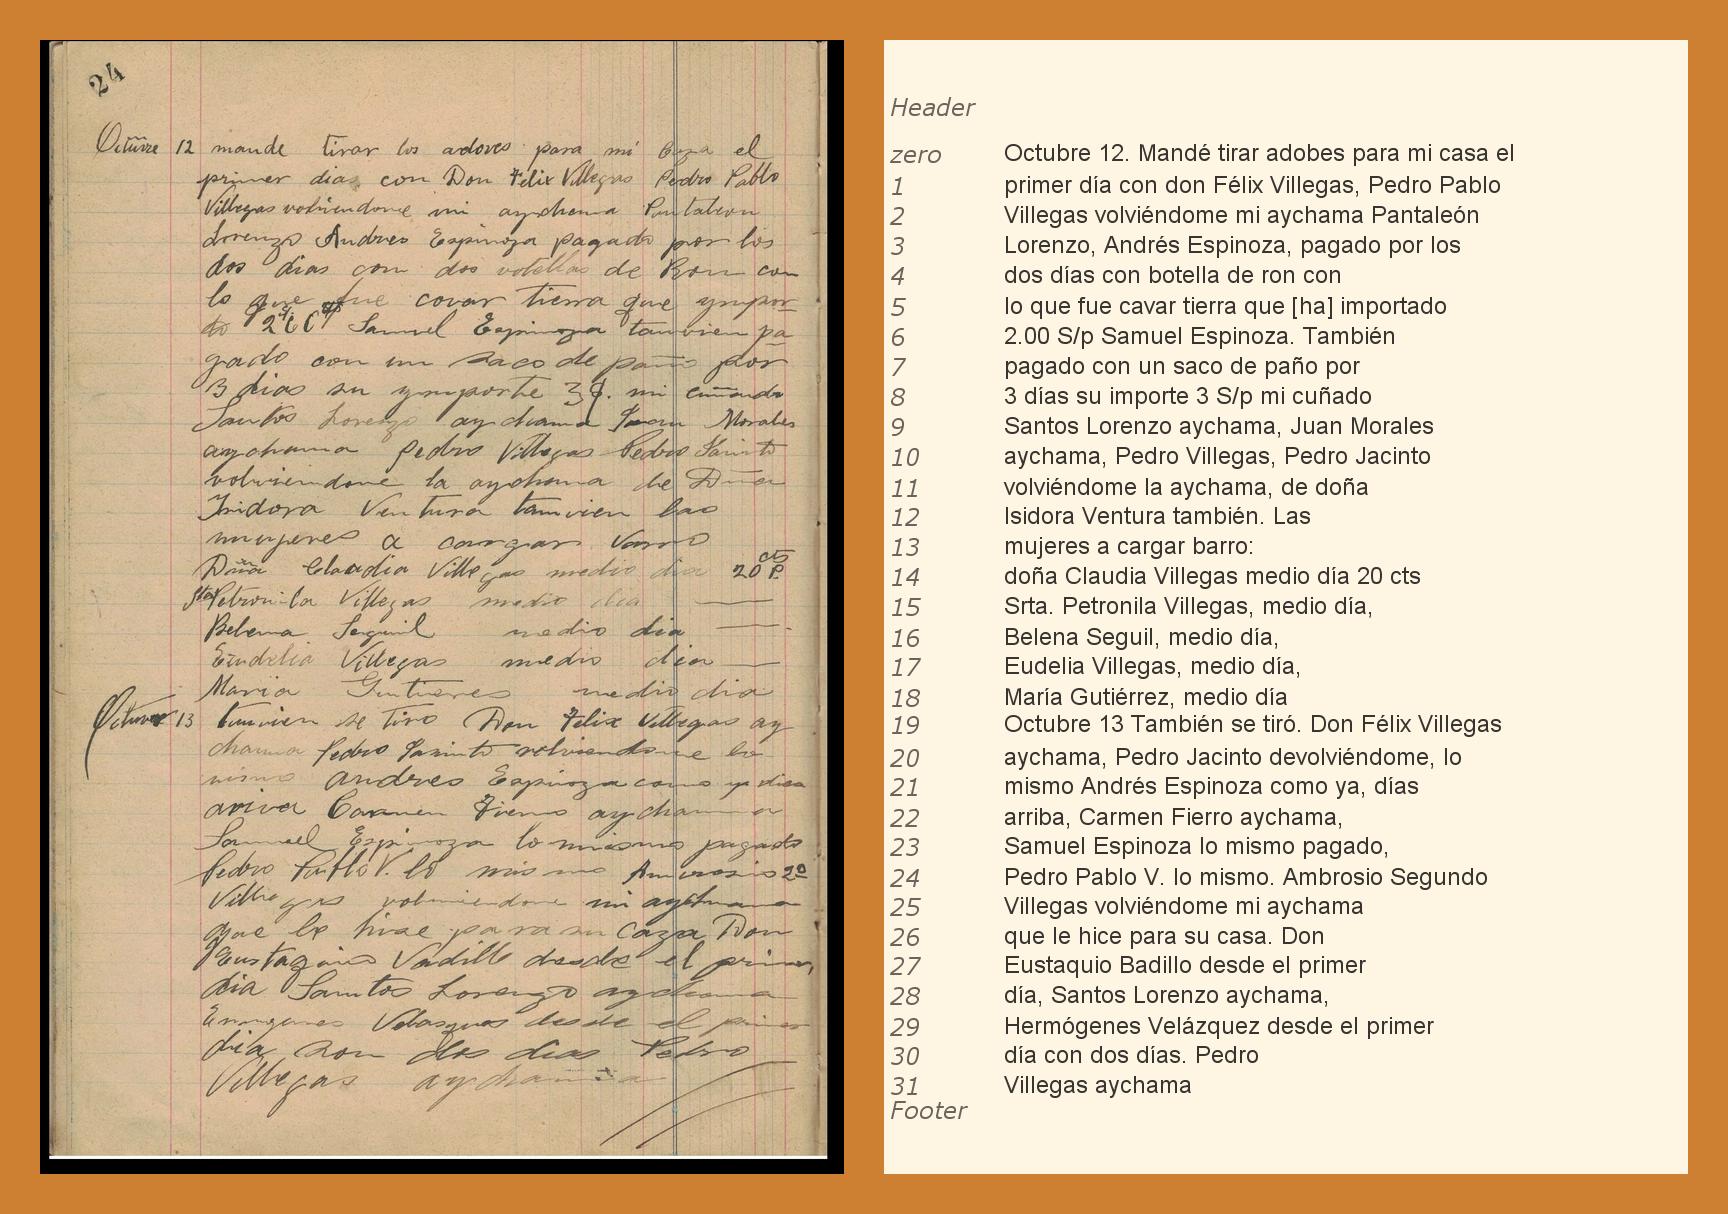 24
Octuvre 12 mande tirar los adoves para mi caza el
primer dia con Don Felix Villegas Pedro Pablo
Villegas volviendome mi aychama Pantaleon
Lorenzo Andres Espinoza pagado por los
dos dias com dos votellas de Ron con
lo que fue covar tierra que ympor
to Samuel Espinoza tamvien pa
gado con un saco de paño por
3 dias su ymporte 3 mi cuñado
Santos Lorenzo aychama Juan Morales
aychama Pedro Villegas Pedro Jasinto
volviendome la aychama de Dña
Isidora Ventura tamvien las
mujeres a cargar varro
Dña Claudia Villegas medio dia 20 cts
Sta Petronila Villegas medio dia
Belema Seguil medio dia
Eudelia Villegas medio dia
Maria Gutierres medio dia
Octuvre 13 tamvien se tiro Don Felix Villegas ay
chama Pedro Jasinto volviendome lo
mismo Andres Espinoza como ya dias
ariva Carmen Fierro aychama
Samuel Espinoza lo mismo pagado
Pedro Pablo V. lo mismo Amvrosio 2º
Villegas volviendome mi aychama
que le hise para su caza Don
Eustaquio Vadillo desde el primer
dia Santos Lorenzo aychama
Ermogenes Velasques desde el primer
dia son dos dias Pedro
Villegas aychama
Header
zero Octubre 12. Mandé tirar adobes para mi casa el
1 primer día con don Félix Villegas, Pedro Pablo
2 Villegas volviéndome mi aychama Pantaleón
3 Lorenzo, Andrés Espinoza, pagado por los
4 dos días con botella de ron con
5 lo que fue cavar tierra que [ha] importado
6 2.00 S/p Samuel Espinoza. También
7 pagado con un saco de paño por
8 3 días su importe 3 S/p mi cuñado
9 Santos Lorenzo aychama, Juan Morales
10 aychama, Pedro Villegas, Pedro Jacinto
11 volviéndome la aychama, de doña
12 Isidora Ventura también. Las
13 mujeres a cargar barro:
14 doña Claudia Villegas medio día 20 cts
15 Srta. Petronila Villegas, medio día,
16 Belena Seguil, medio día,
17 Eudelia Villegas, medio día,
18 María Gutiérrez, medio día
19 Octubre 13 También se tiró. Don Félix Villegas
20 aychama, Pedro Jacinto devolviéndome, lo
21 mismo Andrés Espinoza como ya, días
22 arriba, Carmen Fierro aychama,
23 Samuel Espinoza lo mismo pagado,
24 Pedro Pablo V. lo mismo. Ambrosio Segundo
25 Villegas volviéndome mi aychama
26 que le hice para su casa. Don
27 Eustaquio Badillo desde el primer
28 día, Santos Lorenzo aychama,
29 Hermógenes Velázquez desde el primer
30 día con dos días. Pedro
31 Villegas aychama
Footer